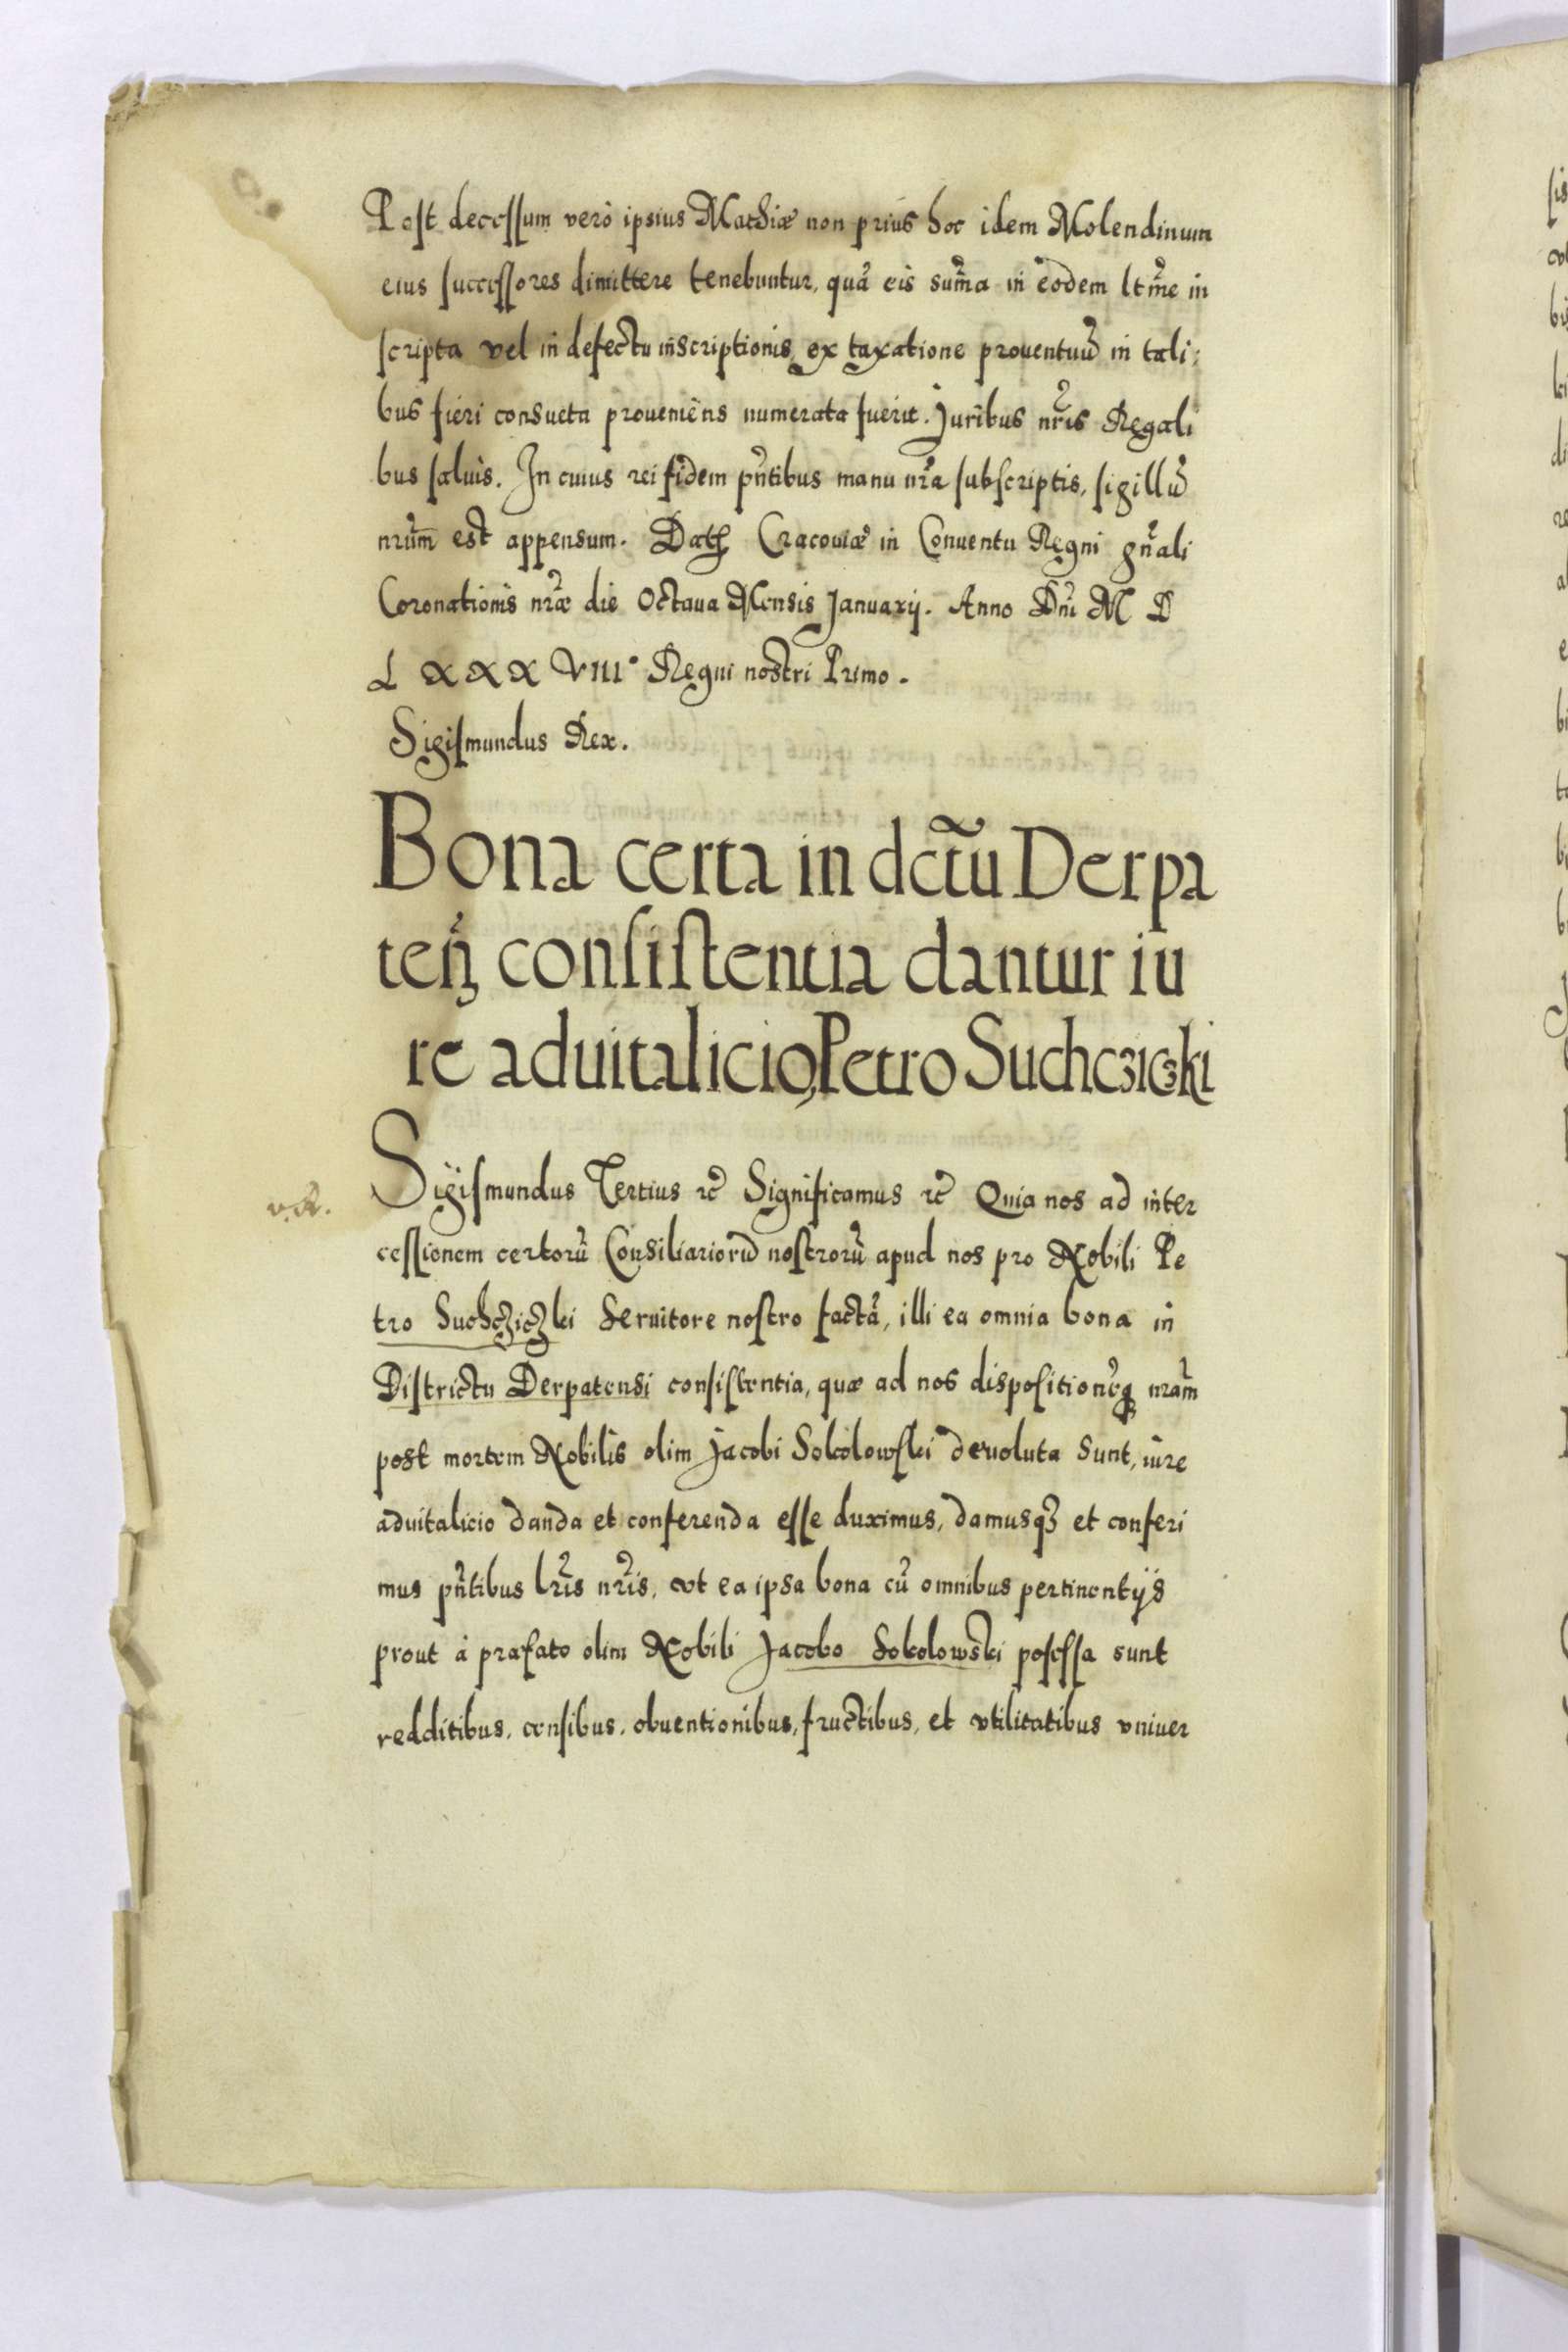 Post decessum verò ipsius Mathiæ non prius hoc idem Molendinum
eius successores dimittere tenebuntur, quã eis sum̃a in eodem lt̃me in
scripta vel in defectu inscriptionis ex taxatione prouentuũ in tali:
bus fieri consueta proueniens numerata fuerit. Juribus nr̃is Regali
bus saluis. In cuius rei fidem pñtibus manu nr̃a subscriptis, sigillũ
nr̃um est appensum. Datꝭ Cracouiæ in Conuentu Regni gñali
Coronationis nr̃æ die Octaua Mensis Januarij. Anno Dñi M D
L X X X VIII° Regni nostri Primo.
Sigismundus Rex.
Bona certa in dctũ Derpa
teñ consistentia dantur iu
re aduitalicio, Petro Suchcziczki
v.k.
Sigismundus Tertius ꝛc̃ Significamus ꝛc̃ Quia nos ad inter
cessionem certorũ Consiliariorũ nostrorũ apud nos pro Nobili Pe
tro Suchcziczki Seruitore nostro factã, illi ea omnia bona in
Districtu Derpatensi consistentia, quæ ad nos dispositionẽqꝫ nr̃am
post mortem Nobilis olim Jacobi Sokolowski deuoluta sunt, iure
aduitalicio danda et conferenda esse duximus, damusqꝫ et conferi
mus pñtibus lr̃is nr̃is, vt ea ipsa bona cũ omnibus pertinentijs
prout à præfato olim Nobili Jacobo Sokolowski posessa sunt
redditibus, censibus, obuentionibus, fructibus, et vtilitatibus vniuer